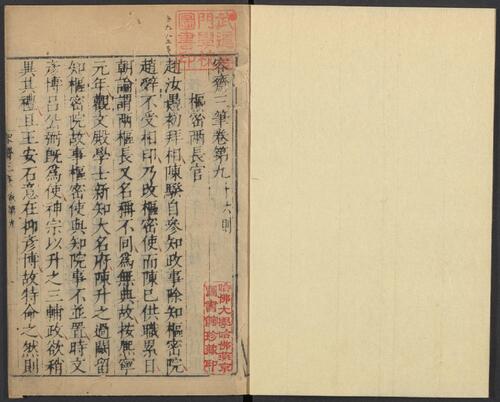 容齋三筆卷第九 十六則
樞密兩長官
趙汝愚初拜相陳騤自參知政事除知樞密院
趙辭不受相印乃改樞密使而陳已供職累日
朝論謂兩樞長又名稱不同爲無典故按熙寧
元年觀文殿學士新知大名府陳升之過闕留
知樞密院故事樞密使與知院事不並置時文
彥博呂公弼既爲使神宗以升之三輔政欲稍
異其禮且王安石意在抑彥博故特命之然則
哈佛大學哈佛燕京
圖書館珍藏印